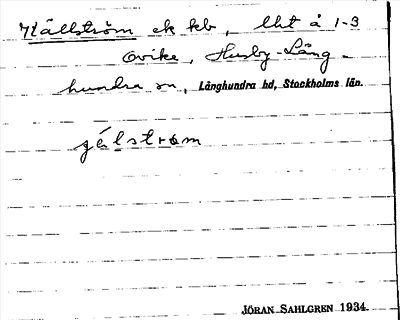 Källström ek kb, lht å 1-3
Ovike, Husby-Lång-
hundra sn, Långhundra hd, Stockholms län.
gélstrøm
JÖRAN SAHLGREN 1934.